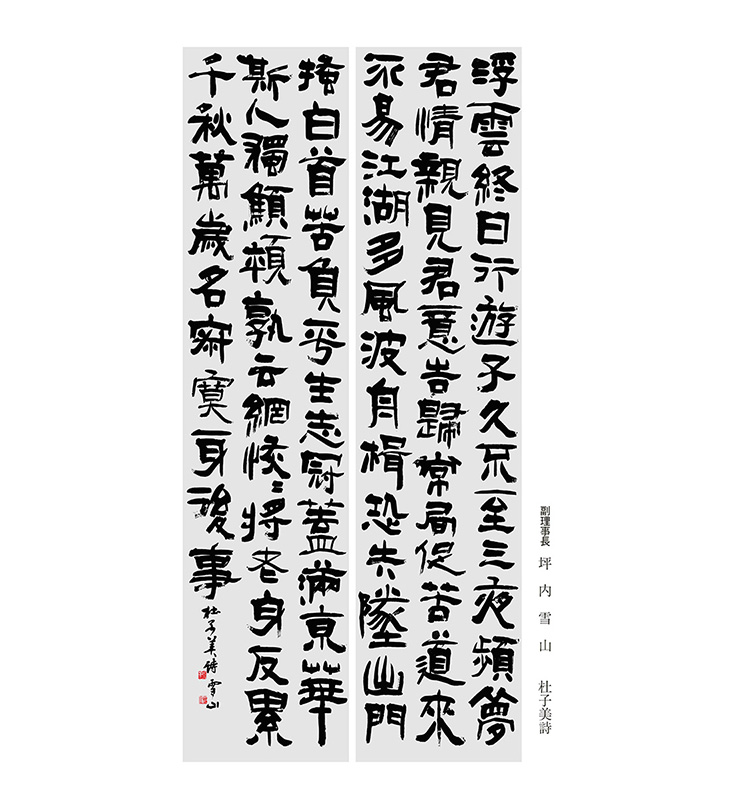 浮雲終日行遊子久不至三夜頻夢
君情親見君意告歸常局促苦道來
不易江湖多風波舟楫恐失墜出門
搔白首苦負平生志冠蓋滿京華
斯人獨顦顇孰云網恢〻將老身反累
千秋萬歲名寂寞身後事 杜子美詩 雪山
副理事長 坪内雪山 杜子美詩